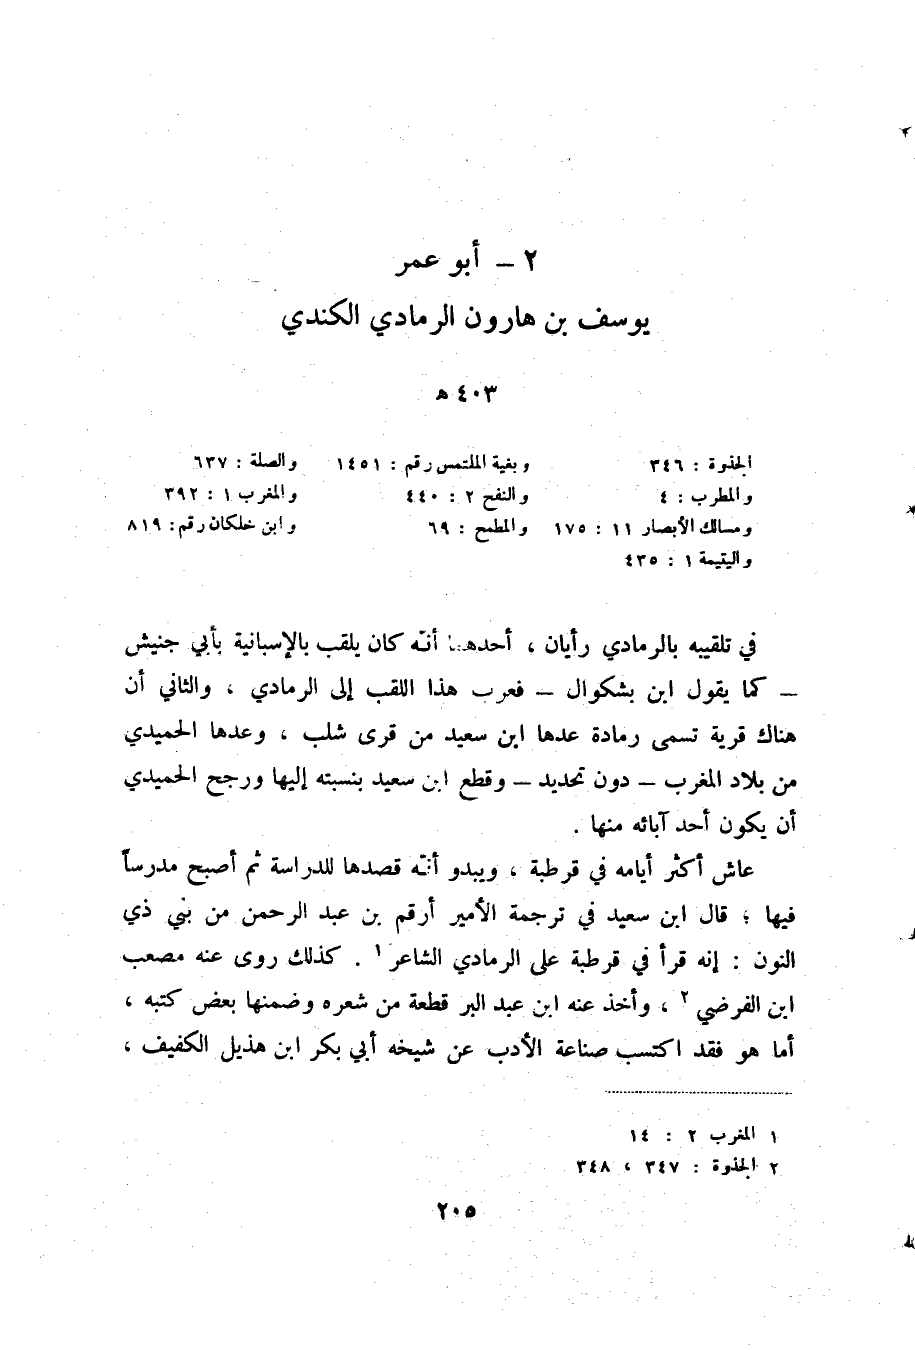 ٢ — أبو عمر
يوسف بن هارون الرمادي الكندي
٤٠٣ ﻫ
الجذوة : ٣٤٦ وبغية الملتمس رقم : ١٤٥١ والصلة : ٦٣٧
والمطرب : ٤ والنفح ٢ : ٤٤٠ والمغرب ١ : ٣٩٢
ومسالك الأبصار ١١ : ١٧٥ والمطمح : ٦٩ وابن خلكان رقم : ٨١٩
واليتيمة ١ : ٤٣٥
في تلقيبه بالرمادي رأيان ، أحدهما أنّه كان يلقب بالإسبانية بأبي جنيش
— كما يقول ابن بشكوال — فعرب هذا اللقب إلى الرمادي ، والثاني أن
هناك قرية تسمى رمادة عدها ابن سعيد من قرى شلب ، وعدها الحميدي
من بلاد المغرب — دون تحديد — وقطع ابن سعيد بنسبته إليها ورجح الحميدي
أن يكون أحد آبائه منها .
عاش أكثر أيامه في قرطبة ، ويبدو أنّه قصدها للدراسة ثم أصبح مدرساً
فيها ؛ قال ابن سعيد في ترجمة الأمير أرقم بن عبد الرحمن من بني ذي
النون : إنه قرأ في قرطبة على الرمادي الشاعر ١ . كذلك روى عنه مصعب
ابن الفرضي ٢ ، وأخذ عنه ابن عبد البر قطعة من شعره وضمنها بعض كتبه ،
أما هو فقد اكتسب صناعة الأدب عن شيخه أبي بكر ابن هذيل الكفيف ،
١ المغرب ٢ : ١٤
٢ الجذوة : ٣٤٧ ، ٣٤٨
٢٠٥